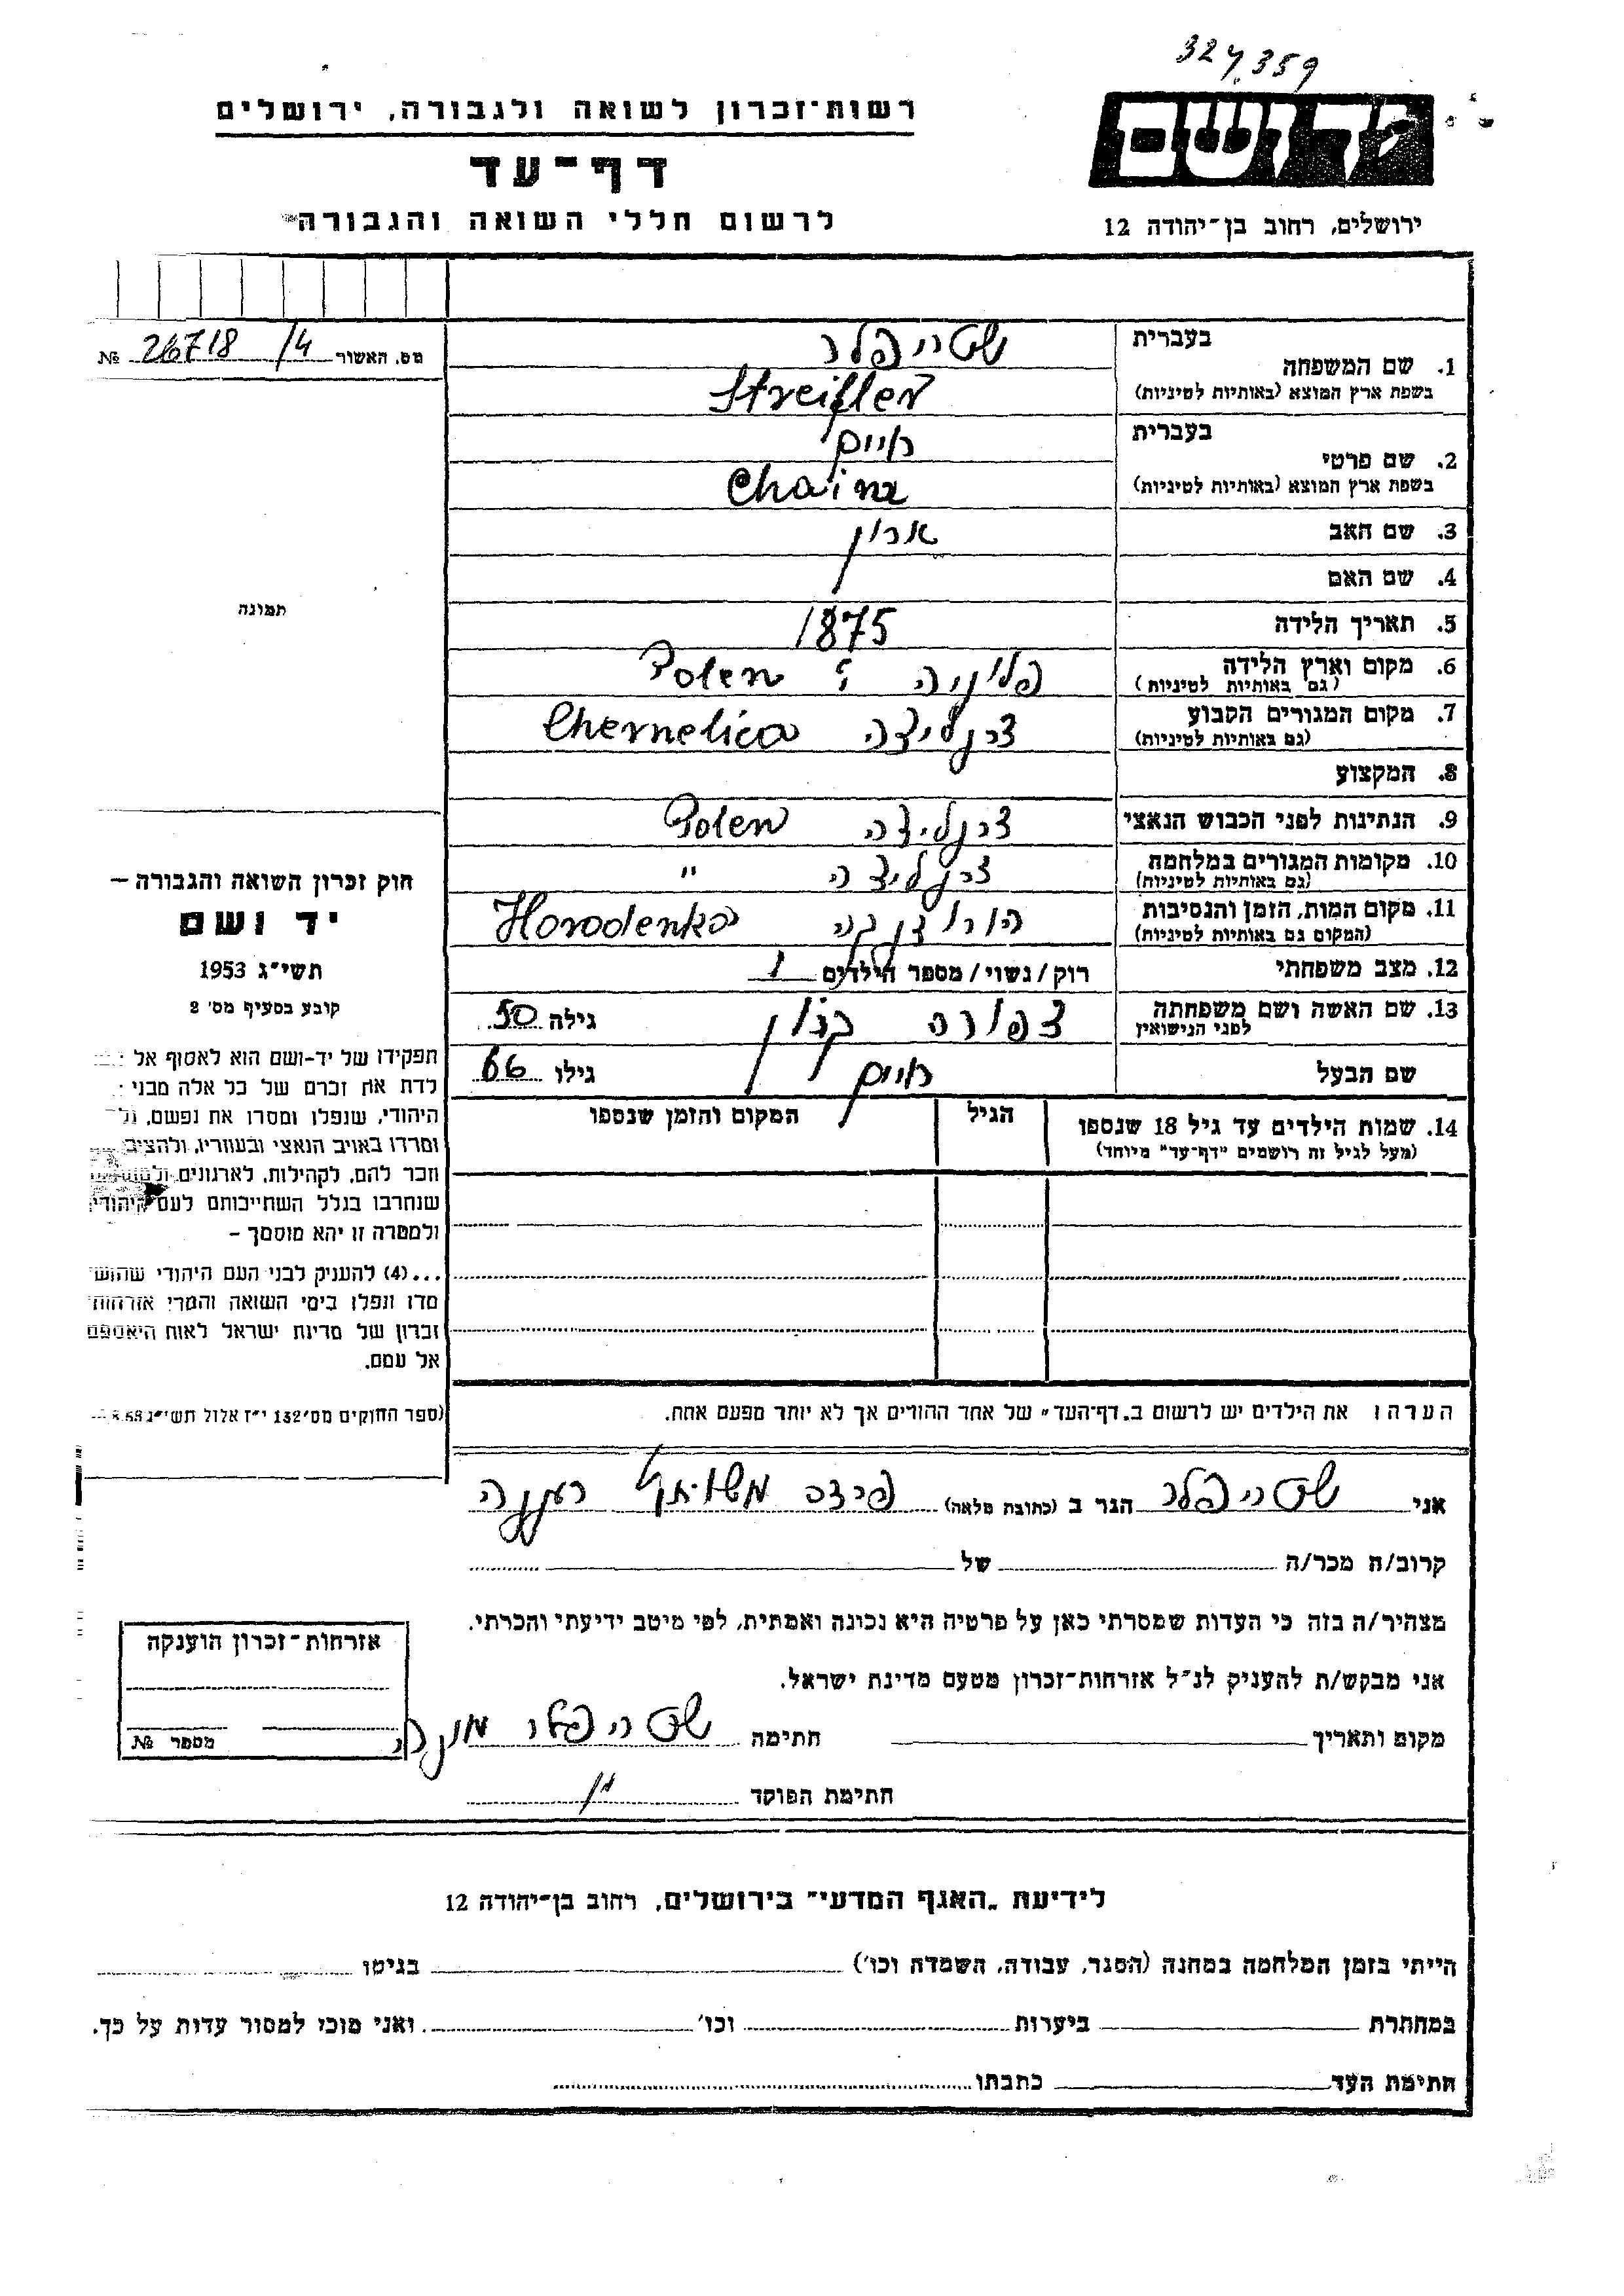 327,359
יד ושם
ירושלים, רחוב בן־יהודה 12
רשות־זכרון לשואה ולגבורה, ירושלים
דף־עד
לרשום חללי השואה והגבורה
מס. האשור 26718 /4 №
תמונה
בעברית
1. שם המשפחה שטרייפלר
בשפת ארץ המוצא (באותיות לטיניות) Streifler
בעברית
2. שם פרטי חיים
בשפת ארץ המוצא (באותיות לטיניות) Chaim
3. שם האב אהרון
4. שם האם
5. תאריך הלידה 1875
6. מקום וארץ הלידה פולניה ; Polen
(גם באותיות לטיניות)
7. מקום המגורים הקבוע צרנליצה Chernelica
(גם באותיות לטיניות)
8. המקצוע
9. הנתינות לפני הכבוש הנאצי צרנליצה Polen
10. מקומות המגורים במלחמה צרנליצה "
(גם באותיות לטיניות)
11. מקום המות, הזמן והנסיבות הורודנקה Horodenka
(המקום גם באותיות לטיניות)
12. מצב משפחתי רוק/נשוי/מספר הילדים 1
13. שם האשה ושם משפחתה צפורה גילה 50
לפני הנישואין
שם הבעל חיים גילו 66
14. שמות הילדים עד גיל 18 שנספו הגיל המקום והזמן שנספו
(מעל לגיל זה רושמים "דף־עד" מיוחד)
הערה: את הילדים יש לרשום ב„דף־העד" של אחד ההורים אך לא יותר מפעם אחת.
חוק זכרון השואה והגבורה –
יד ושם
תשי"ג 1953
קובע בסעיף מס' 2
תפקידו של יד-ושם הוא לאסוף אל
לדת את זכרם של כל אלה מבני
היהודי, שנפלו ומסרו את נפשם,
ומרדו באויב הנאצי ובעוזריו, ולהציב
וזכר להם, לקהילות, לארגונים
שנחרבו בגלל השתייכותם לעם היהודי
ולמטרה זו יהא מוסמך –
...(4) להעניק לבני העם היהודי שהוש
מדו ונפלו בימי השואה והמרי אזרחות
זכרון של מדינת ישראל לאות היאספם
אל עמם.
(ספר החוקים מס' 132 י"ז אלול תשי"ג
אני שטרייפלר הגר ב (כתובת מלאה) רעננה
קרוב/ה מכר/ה של
מצהיר/ה בזה כי העדות שמסרתי כאן על פרטיה היא נכונה ואמתית, לפי מיטב ידיעתי והכרתי.
אני מבקש/ת להעניק לנ"ל אזרחות־זכרון מטעם מדינת ישראל.
מקום ותאריך חתימה שטרייפלר
חתימת הפוקד
אזרחות־זכרון הוענקה
מספר №
לידיעת „האגף המדעי" בירושלים, רחוב בן־יהודה 12
הייתי בזמן המלחמה במחנה (הסגר, עבודה, השמדה וכו') בגיטו
במחתרת ביערות וכו' ואני מוכן למסור עדות על כך.
חתימת העד כתבתו